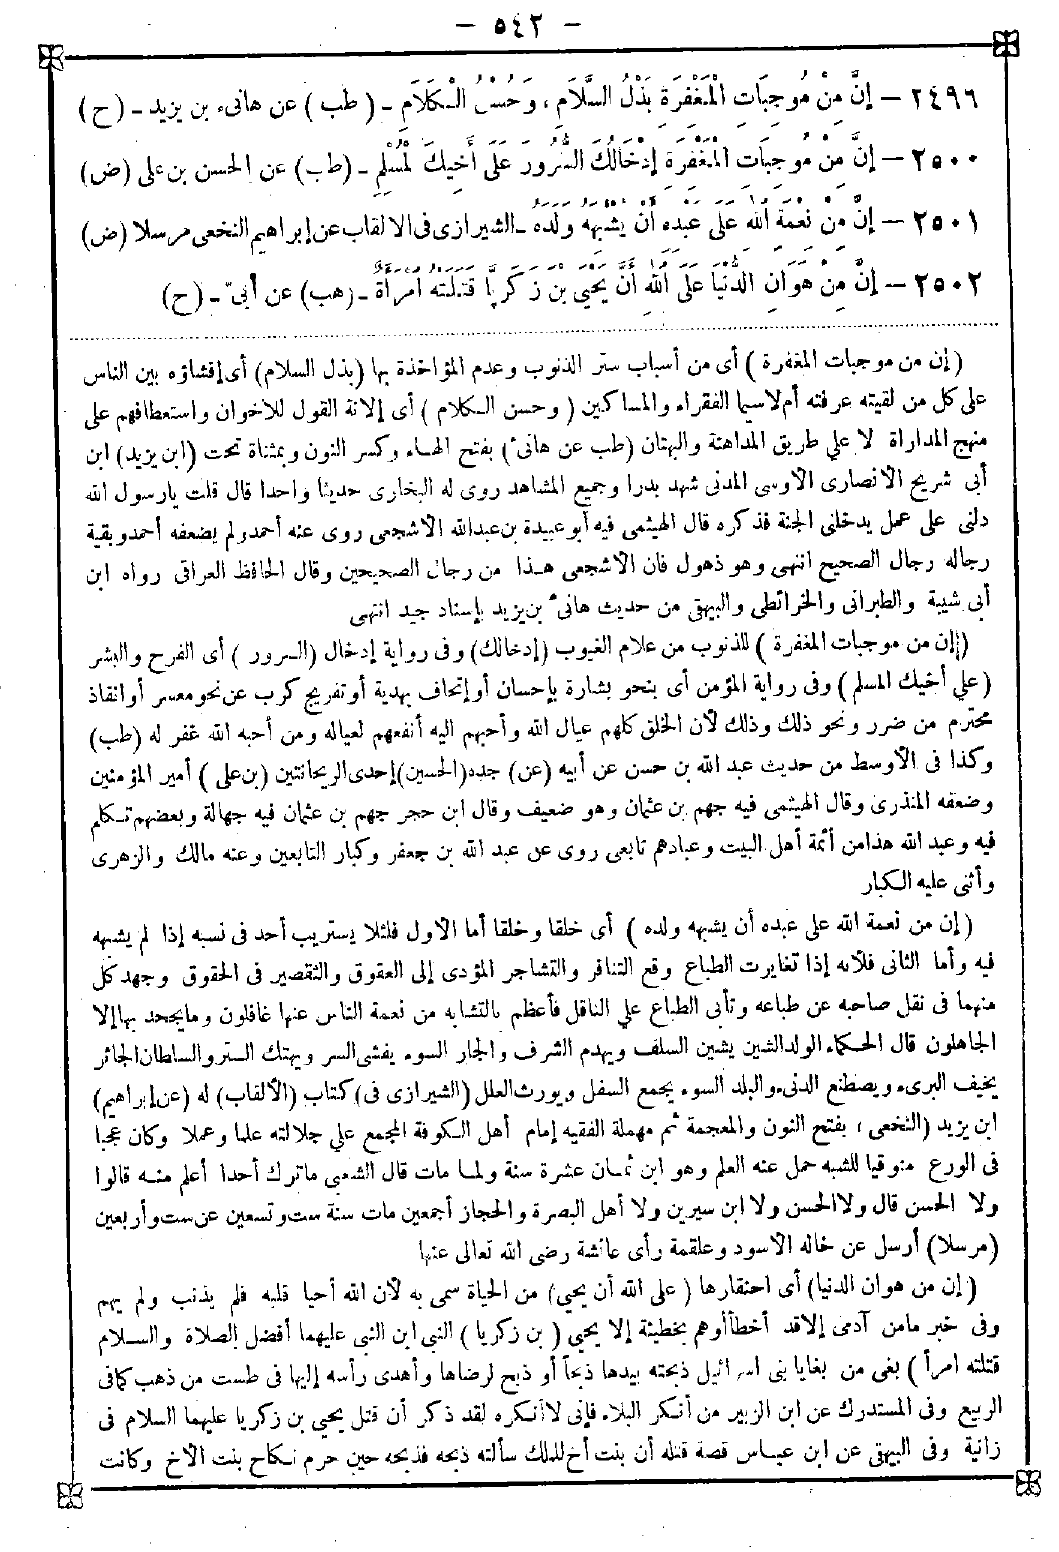 - ٥٤٢ -
٢٤٩٦ - إِنَّ مِنْ مُوجِبَاتِ الْمَغْفِرَةِ بَذْلُ السَّلَامِ، وَحُسْنُ الْكَلَامِ - (طب) عن هانىء بن يزيد - (ح)
٢٥٠٠ - إِنَّ مِنْ مُوجِبَاتِ الْمَغْفِرَةِ إِدْخَالُكَ السُّرُورَ عَلَى أَخِيكَ الْمُسْلِمِ - (طب) عن الحسن بن على (ض)
٢٥٠١ - إِنَّ مِنْ نِعْمَةِ اللهِ عَلَى عَبْدِهِ أَنْ يُشْبِهَهُ وَلَدُهُ - الشيرازى فى الالقاب عن إبراهيم النخعى مرسلا (ض)
٢٥٠٢ - إِنَّ مِنْ هَوَانِ الدُّنْيَا عَلَى اللهِ أَنَّ يَحْيَى بْنَ زَكَرِيَّا قَتَلَتْهُ امْرَأَةٌ - (هب) عن أبىّ - (ح)
(إن من موجبات المغفرة) أى من أسباب ستر الذنوب وعدم المؤاخذة بها (بذل السلام) أى إفشاؤه بين الناس
على كل من لقيته عرفته أم لاسيما الفقراء والمساكين (وحسن الكلام) أى إلانة القول للاخوان واستعطافهم على
منهج المداراة لا على طريق المداهنة والبهتان (طب عن هانىء) بفتح الهاء وكسر النون وبمثناة تحت (ابن يزيد) ابن
أبى شريح الأنصارى الأوسى المدنى شهد بدرا وجميع المشاهد روى له البخارى حديثا واحدا قال قلت يارسول الله
دلنى على عمل يدخلنى الجنة فذكره قال الهيثمى فيه أبو عبيدة بن عبدالله الأشجعى روى عنه أحمد ولم يضعفه أحمد وبقية
رجاله رجال الصحيح انتهى وهو ذهول فان الأشجعى هذا من رجال الصحيحين وقال الحافظ العراقى رواه ابن
أبى شيبة والطبرانى والخرائطى والبيهقى من حديث هانىء بن يزيد بإسناد جيد انتهى
(إن من موجبات المغفرة) للذنوب من علام الغيوب (إدخالك) وفى رواية إدخال (السرور) أى الفرح والبشر
(على أخيك المسلم) وفى رواية المؤمن أى بنحو بشارة بإحسان أو إتحاف بهدية أو تفريج كرب عن نحو معسر أو انقاذ
محترم من ضرر ونحو ذلك وذلك لأن الخلق كلهم عيال الله وأحبهم اليه أنفعهم لعياله ومن أحبه الله غفر له (طب)
وكذا فى الأوسط من حديث عبد الله بن حسن عن أبيه (عن) جده (الحسين) إحدى الريحانتين (بن على) أمير المؤمنين
وضعفه المنذرى وقال الهيثمى فيه جهم بن عثمان وهو ضعيف وقال ابن حجر جهم بن عثمان فيه جهالة وبعضهم تكلم
فيه وعبد الله هذا من أئمة أهل البيت وعبادهم تابعى روى عن عبد الله بن جعفر وكبار التابعين وعنه مالك والزهرى
وأثنى عليه الكبار
(إن من نعمة الله على عبده أن يشبهه ولده) أى خلقا وخلقا أما الأول فلئلا يستريب أحد فى نسبه إذا لم يشبهه
فيه وأما الثانى فلأنه إذا تغايرت الطباع وقع التنافر والتشاجر المؤدى إلى العقوق والتقصير فى الحقوق وجهد كل
منهما فى نقل صاحبه عن طباعه وتأبى الطباع على الناقل فأعظم بالتشابه من نعمة الناس عنها غافلون وما يجحد بها إلا
الجاهلون قال الحكماء الولد الشين يشين السلف ويهدم الشرف والجار السوء يفشى السر ويهتك الستر والسلطان الجائر
يخيف البرىء ويصطنع الدنىء والبلد السوء يجمع السفل ويورث العلل (الشيرازى فى) كتاب (الألقاب) له (عن إبراهيم)
ابن يزيد (النخعى) بفتح النون والمعجمة ثم مهملة الفقيه إمام أهل الكوفة المجمع على جلالته علما وعملا وكان عجبا
فى الورع متوقيا للشبه حمل عنه العلم وهو ابن ثمان عشرة سنة ولما مات قال الشعبى ماترك أحدا أعلم منه قالوا
ولا الحسن قال ولا الحسن ولا ابن سيرين ولا أهل البصرة والحجاز أجمعين مات سنة ست وتسعين عن ست وأربعين
(مرسلا) أرسل عن خاله الأسود وعلقمة رأى عائشة رضى الله تعالى عنها
(إن من هوان الدنيا) أى احتقارها (على الله أن يحيى) من الحياة سمى به لأن الله أحيا قلبه فلم يذنب ولم يهم
وفى خبر مامن آدمى إلا قد أخطأ أوهم بخطيئة إلا يحيى (بن زكريا) النبى ابن النبى عليهما أفضل الصلاة والسلام
قتلته امرأ) بغى من بغايا بنى اسرائيل ذبحته بيدها ذبحاً أو ذبح لرضاها وأهدى رأسه إليها فى طست من ذهب كما فى
الربيع وفى المستدرك عن ابن الزبير من أنكر البلاء فإنى لا أنكره لقد ذكر أن قتل يحيى بن زكريا عليهما السلام فى
زانية وفى البيهقى عن ابن عباس قصة قتله أن بنت أخ للملك سألته ذبحه فذبحه حين حرم نكاح بنت الأخ وكانت